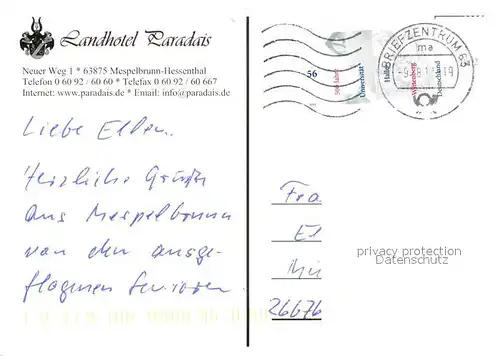 Landhotel Paradais
Neuer Weg 1 * 63875 Mespelbrunn-Hessenthal
Telefon 0 60 92 / 60 60 * Telefax 0 60 92 / 60 667
Internet: www.paradais.de * Email: info@paradais.de
BRIEFZENTRUM 63
ma
56
500 Jahre
Universität
Halle-
Wittenberg
Deutschland
Liebe Ellen.
Herzliche Grüße
aus Mespelbrunn
von den ausge-
flogenen Senioren.
Fra
El
privacy protection
Datenschutz
26676